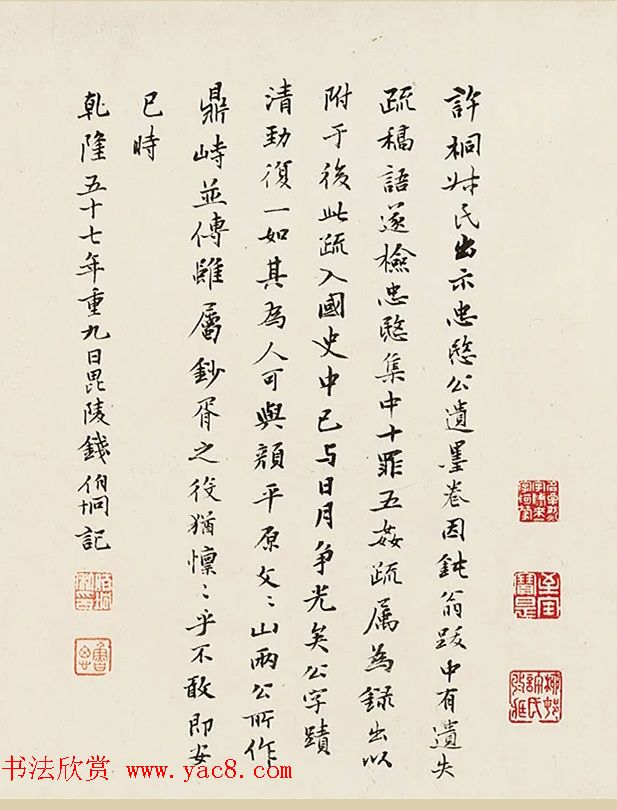 許桐姊氏出示忠愍公遺墨卷因鈍翁跋中有遺失
疏稿語遂檢忠愍集中十罪五姦疏屬為錄出以
附于後此疏入國史中已与日月争光矣公字蹟
清勁復一如其為人可與顏平原文〻山兩公所作
鼎峙並傳雖屬鈔胥之役猶懍〻乎不敢即安
已時
乾隆五十七年重九日毘陵錢伯坰記
书法欣赏 www.yac8.com